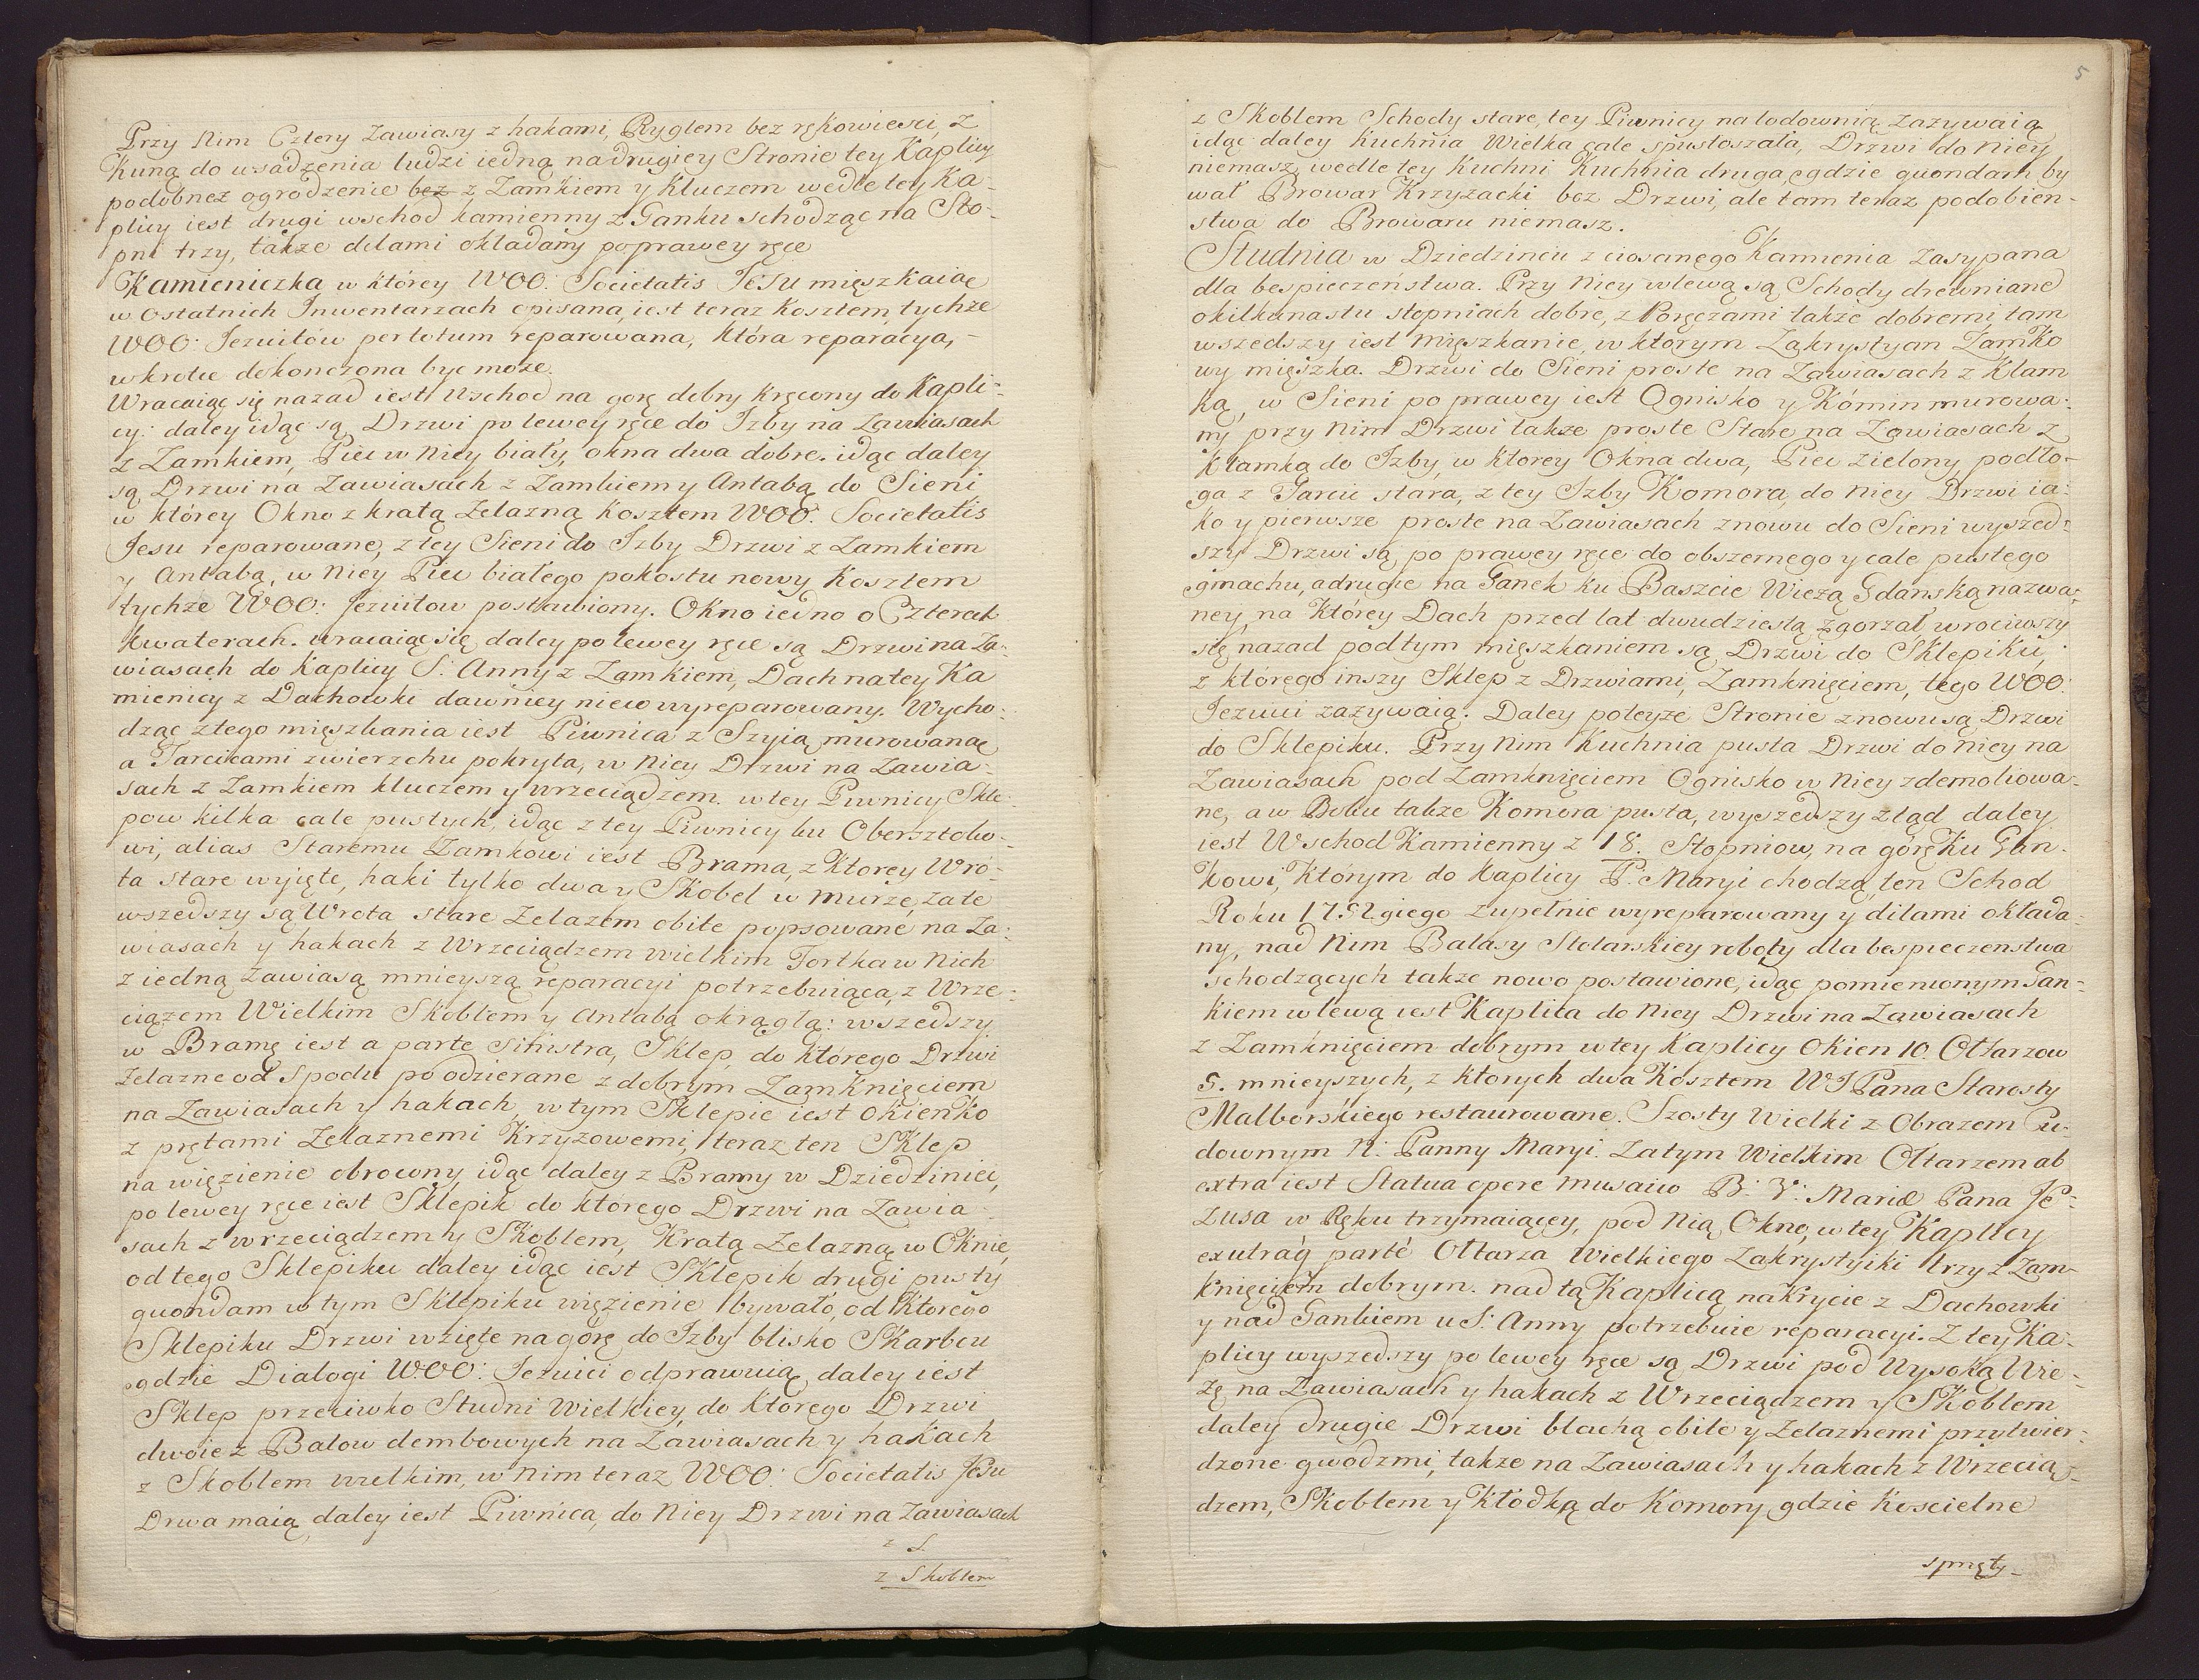 Przy Nim Cztery Zawiasy z hakami, Ryglem bez rękowieści, z
Kuną do wsadzenia ludzi iedną na drugiey Stronie tey Kaplicy
podobnez ogrodzenie bez z Zamkiem y Kluczem wedle tey Ka-
plicy iest drugi wschod kamienny z Ganku schodząc na Sto-
pni trzy, także delami okładany po prawey ręce
Kamieniczka w ktorey WOO. Societatis Jesu mięszkaiąc
w ostatnich Inwentarzach opisana, iest teraz kosztem tychże
WOO. Jezuitów per totum reparowana, która reparacya,
wkrotce dokonczona byc może.
Wracaiąc się nazad iest Wschod na gorę dobry kręcony do Kapli-
cy: daley idąc są Drzwi po lewey ręce do Izby na Zawiasach
z Zamkiem, Piec w Niey biały, okna dwa dobre. idąc daley
są Drzwi na Zawiasach z Zamkiem y Antabą do Sieni
w którey Okno z kratą Zelazną Kosztem WOO. Societatis
Jesu reparowane, z tey Sieni do Izby Drzwi z Zamkiem
y Antabą, w Niey Piec białego pokostu nowy Kosztem
tychże WOO: Jezuitow postawiony. Okno iedno o Czterech
kwaterach. wracaiąc się daley po lewey ręce są Drzwi na Za-
wiasach do Kaplicy S: Anny z Zamkiem, Dach na tey Ka
mienicy z Dachowki dawniey nieco wyreparowany. Wycho-
dząc z tego mięszkania iest Piwnica z Szyią murowaną
a Tarcicami zwierzchu pokryta, w Niey Drzwi na Zawia-
sach z Zamkiem kluczem y wrzeciądzem. w tey Piwnicy Skle-
pow kilka cale pustych, idąc z tey Piwnicy ku Obersztokо-
wi, alias Staremu Zamkowi iest Brama, z Ktorey Wró-
ta stare wyięte, haki tylko dwa y Skobel w murze, zate
wszedszy są Wrota stare Zelazem obite popsowane na Za-
wiasach y hakach z Wrzeciądzem wielkim Fortka w Nich
z iedną zawiasą mnieyszą reparacyi potrzebuiąca, z Wrze-
ciązem Wielkim Skoblem y Antabą okrągłą: wszedszy
w Bramę iest a parte sinistra, Sklep, do ktorego Drzwi
Zelazne od spodu poodzierane z dobrym Zamknięciem
na Zawiasach y hakach, w tym Sklepie iest okienko
z prętami Zelaznemi Krzyzowemi, teraz ten Sklep
na więzienie obrocony, idąc daley z Bramy w Dziedziniec,
po lewey ręce iest Sklepik do którego Drzwi na Zawia
sach z wrzeciądzem y Skoblem, Kratą Zelazną w Oknie,
od tego Sklepiku daley idąc iest Sklepik drugi pusty
quondam w tym Sklepiku więzienie bywało, od Ktorego
Sklepiku Drzwi wzięte na górę do Izby blisko Skarbcu
gdzie Dialogi WOO: Jezuici odprawuią, daley iest
Sklep przeciwko Studni Wielkiey, do ktorego Drzwi
dwoie z Balow dembowych na Zawiasach y hakach
z Skoblem wielkim, w Nim teraz WOO: Societatis Jesu
Drwa maią, daley iest Piwnica, do Niey Drzwi na Zawiasach
z S.
z Skoblem
5
z Skoblem Schody stare, tey Piwnicy na lodownią zazywaią
idąc daley Kuchnia Wielka cale spustoszała, Drzwi do Niey
niemasz, wedle tey Kuchni Kuchnia druga, gdzie quondam by
wał Browar Krzyżacki bez Drzwi, ale tam teraz podobien-
stwa do Browaru niemasz.
Studnia w Dziedzincu z ciosanego Kamienia Zasypana
dla bespieczeństwa. Przy Niey w lewą są Schody drewniane
o kilkunastu stopniach dobre, z Poręczami także dobremi, tam
wszedszy iest mięszkanie, w którym Zakrystyan Zamko
wy mięszka. Drzwi do Sieni proste na Zawiasach z Klam
ką, w Sieni po prawey iest Ognisko y Kómin murowa-
ny przy Nim Drzwi także proste Stare na Zawiasach z
Klamką do Izby, w ktorey Okna dwa, Piec zielony podło-
ga z Tarcic stara, z tey Izby Komora, do Niey Drzwi ia-
ko y pierwsze proste na Zawiasach znowu do Sieni wyszed-
szy Drzwi są po prawey ręce do obszernego y cale pustego
gmachu, a drugie na Ganek ku Baszcie Wieżą Gdanską nazwa-
ney, na Którey Dach przed lat dwudziestą zgorzał, wrociwszy
się nazad pod tym mięszkaniem są Drzwi do Sklepiku,
z którego inszy Sklep z Drzwiami, Zamknięciem, tego WOO:
Jezuici zazywaią. Daley po teyże Stronie znowu są Drzwi
do Sklepiku. Przy Nim Kuchnia pusta Drzwi do Niey na
Zawiasach pod Zamknięciem Ognisko w Niey zdemoliowa-
ne, a w Boku także Komora pusta, wyszedszy ztąd daley
iest Wschod Kamienny z 18. Stopniow, na górę Ku Gan-
kowi, Którym do kaplicy P. Maryi chodzą, ten Schod
Roku 1752giego Zupełnie wyreparowany y dilami okłada-
ny, nad Nim Balasy Stolarskiey roboty dla bespieczenstwa
schodzących także nowo postawione, idąc pomienionym Gan-
kiem w lewą iest Kaplica do Niey Drzwi na Zawiasach
z Zamknięciem dobrym w tey Kaplicy Okien 10. Ołtarzow
5. mnieyszych, z ktorych dwa Kosztem WJPana Starosty
Malborskiego restaurowane. Szosty Wielki z Obrazem Cu-
downym N: Panny Maryi. Za tym Wielkim Ołtarzem ab
extra iest Statua opere musaico B: V: Mariæ Pana Je-
zusa w Ręku trzymaiącey, pod Nią Okno, w tey Kaplicy
ex utraq parte Ołtarza Wielkiego Zakrystyiki trzy z Zam-
knięciem dobrym. nad tą Kaplicą nakrycie z Dachowki
y nad Gankiem u S. Anny potrzebuie reparacyi. Z tey Ka-
plicy wyszedszy po lewey ręce są Drzwi pod Wysoką Wie-
żę na Zawiasach y hakach z Wrzeciądzem y Skoblem
daley drugie Drzwi blachą obite y Zelaznemi przytwier-
dzone gwodzmi, także na Zawiasach y hakach z Wrzecią-
dzem, Skoblem y Kłodką do Komory, gdzie Koscielne
sprzęty